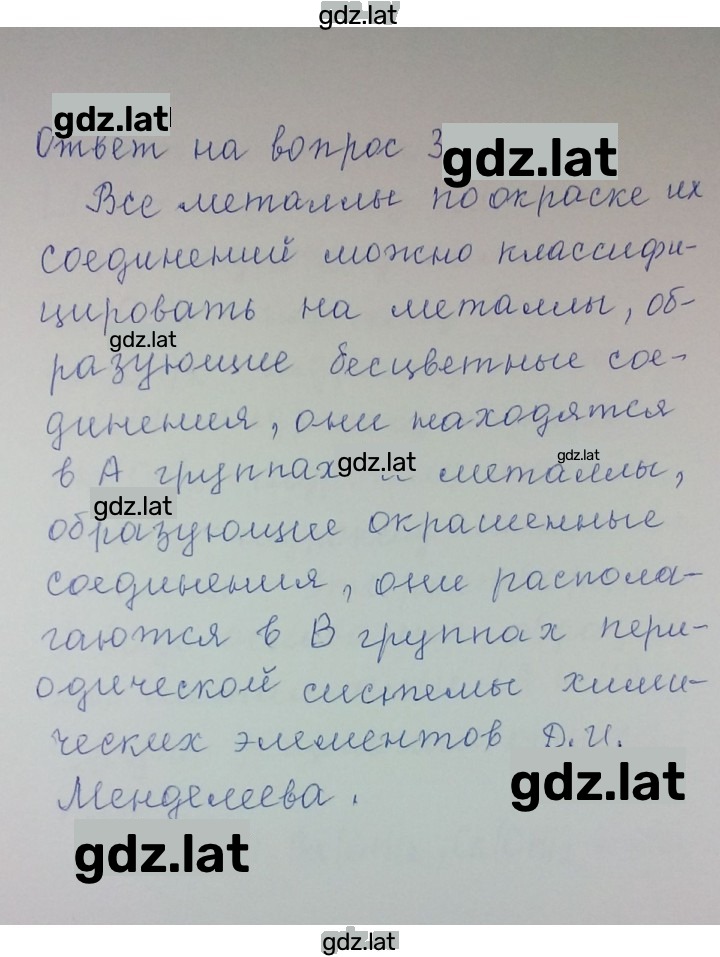 gdz.lat
gdz.lat
Ответ на вопрос 3
gdz.lat
Все металлы по окраске их
соединений можно классифи-
цировать на металлы, об-
gdz.lat
разующие бесцветные сое-
динения, они находятся
в А группах и металлы,
gdz.lat
gdz.lat
gdz.lat
образующие окрашенные
соединения, они распола-
гаются в В группах пери-
одической системы хими-
ческих элементов Д.И.
gdz.lat
Менделеева.
gdz.lat
gdz.lat